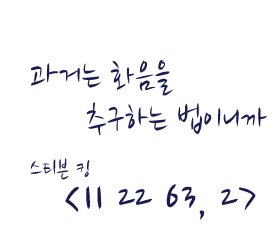 과거는 화음을
추구하는 법이니까
스티븐 킹
<11 22 63, 2>